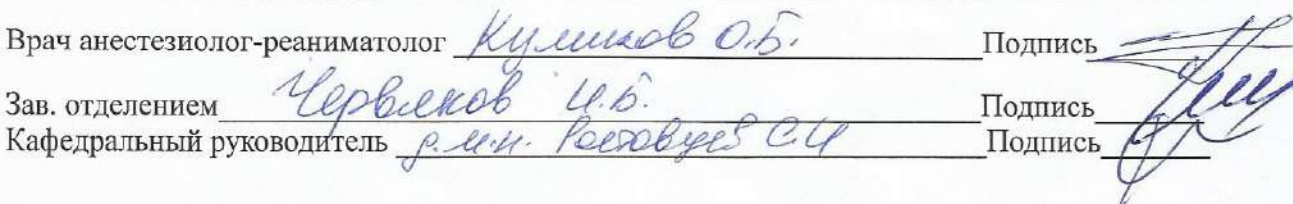 Врач анестезиолог-реаниматолог Куликов О.Б. Подпись
Зав. отделением Червяков И.Б. Подпись
Кафедральный руководитель д.м.н. Ростовцев С.И Подпись